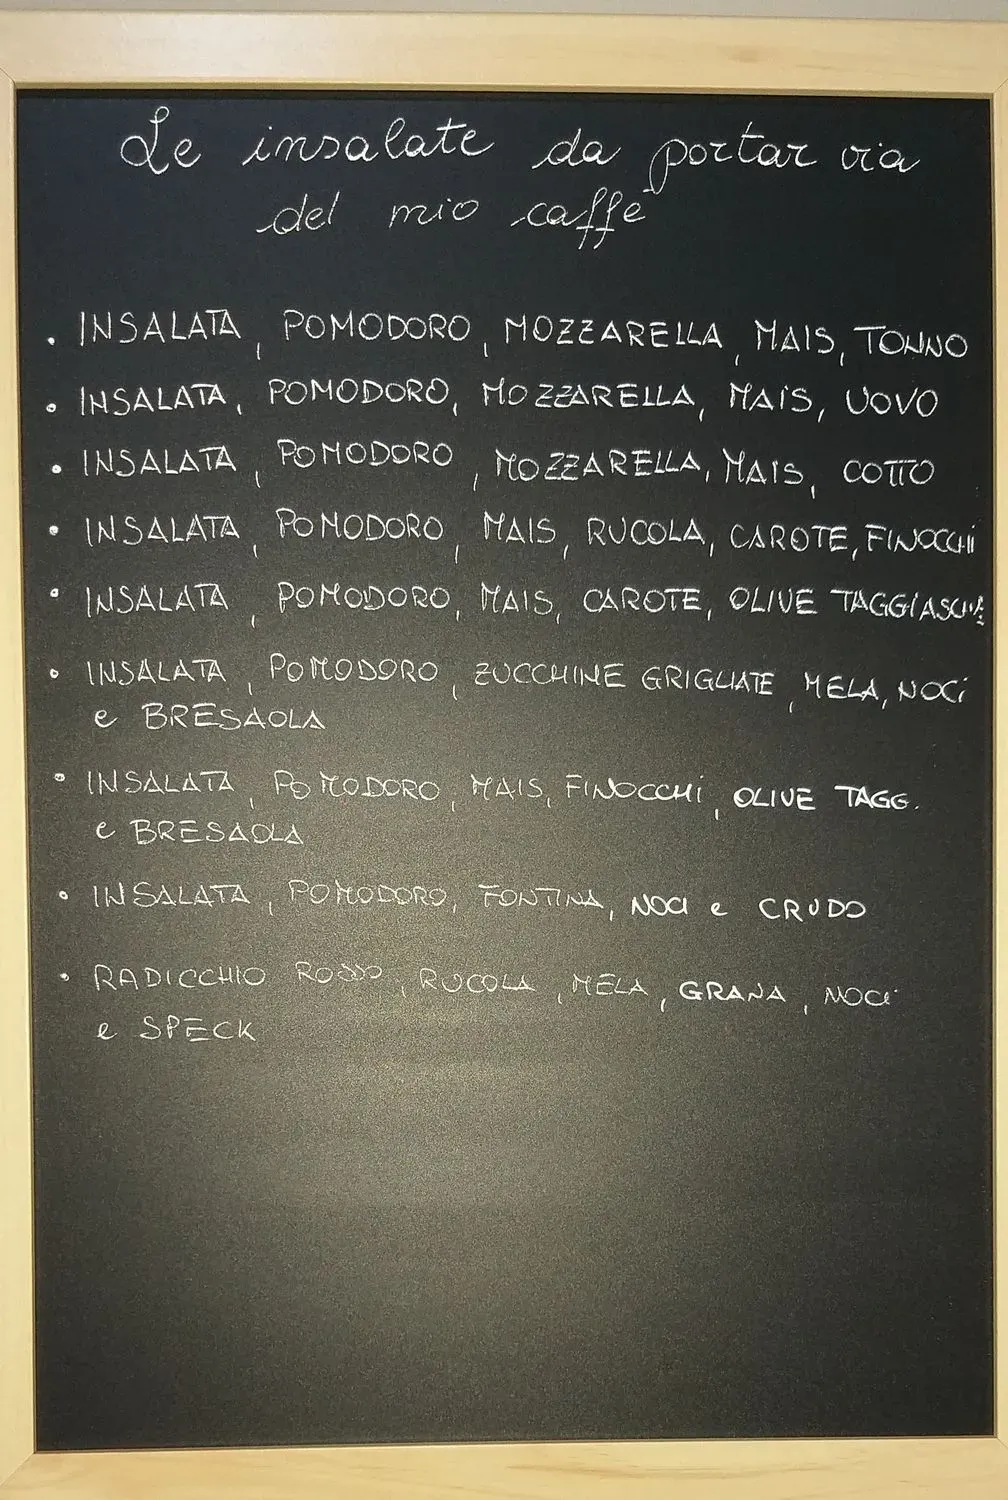 Le insalate da portar via
del mio caffè
. INSALATA, POMODORO, MOZZARELLA, MAIS, TONNO
• INSALATA, POMODORO, MOZZARELLA, MAIS, UOVO
• INSALATA, POMODORO, MOZZARELLA, MAIS, COTTO
• INSALATA, POMODORO, MAIS, RUCOLA, CAROTE, FINOCCHI
• INSALATA, POMODORO, MAIS, CAROTE, OLIVE TAGGIASCHE
• INSALATA, POMODORO, ZUCCHINE GRIGLIATE, MELA, NOCI
e BRESAOLA
• INSALATA, POMODORO, MAIS, FINOCCHI, OLIVE TAGG.
e BRESAOLA
• INSALATA, POMODORO, FONTINA, NOCI e CRUDO
• RADICCHIO ROSSO, RUCOLA, MELA, GRANA, NOCI
e SPECK